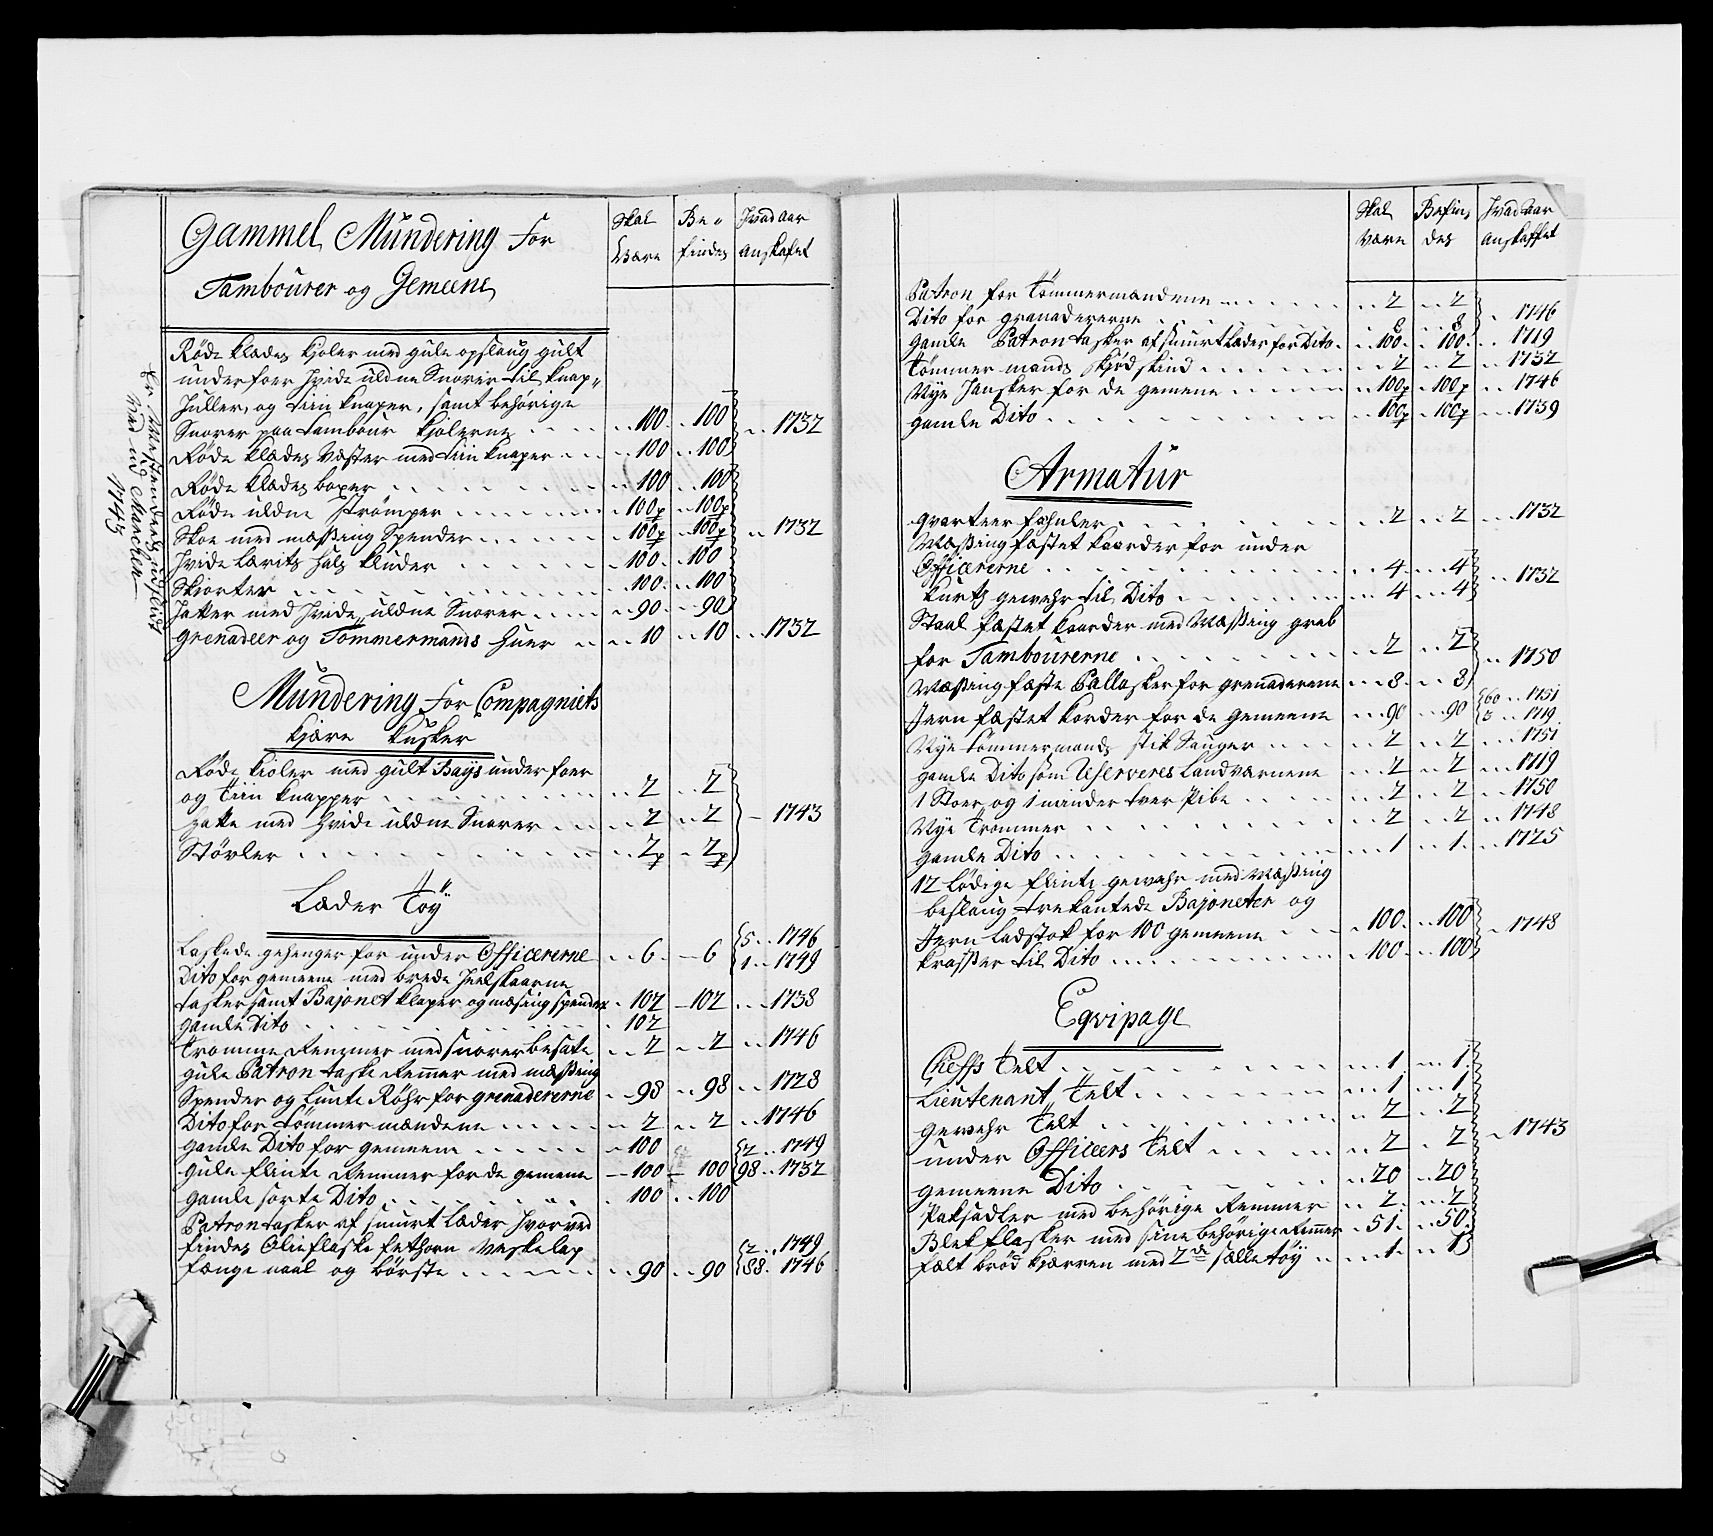 Gammel Mundering for
Tambourer og Gemeene
Skal Være
Be- findes
Hvad aar anskafet
Røde klædes kioler med gule opslaug gult
underfoer Hvide uldne Snorer til knap-
huller, og tiin knaper, samt behørige
Snorer paa tambour kiolerne 100 100
Røde klædes Væster med tiin knaper 100 100 1732
Røde klædes boxer 100 100
Røde uldne Strømper 100p 100p
Skoe med mæssing Spender 100p 100p 1732
Hvide Lærits Hals kluder 100 100
Skiorter 100 100
Hatter med Hvide uldne Snorer 90 90
Grenadeer og Tømmermands Huer 10 10 1732
1743
Mundering for Compagniets
kjære kusker
Røde kioler med gult Bays underfoer
og tiin knapper 2 2
Hatte med Hvide uldne Snorer 2 2 1743
Støvler 2p 2p
Læder Töÿ
Laskede gehenger for under Officererne 6 6 5 1746
1 1749
Dito for gemeene med brede Heelskaarne
tasker samt Bajonet klaper og mæsing spender 102 102 1738
gamle Dito 102
Tromme Remmer med snorer besatte 2 2 1746
gule Patron taske Remmer med mæssing
Spender og Lunte Röhr for grenadererne 98 98 1728
Dito for tømmermændene 2 2 1746
gamle Dito for gemeene 100
gule flinte Remmer for de gemene 100 100 2 1749
98 1732
gamle sorte Dito 100 100
Patrontasker af smurt Læder Hvorved
findes Olieflaske fethorn Veskelap
fænge naal og børste 90 90 2 1749
88 1746
Skal være
Befin- des
Hvad aar anskaffet
Patron for Tømmermændene 2 2
Dito for granadererne 8 8 1746
gamle Patron tasker af smurt Læder for Dito 100 100 1719
Tømmermands Skjød skind 2 2 1732
Nye Hansker for de gemene 100p 100p 1746
gamle Dito 100p 100p 1739
Armatur
qvarteer fahnler 2 2 1732
Mæssing fæstet kaarder for under
Officererne 4 4
kurtz gewehr til Dito 4 4 1732
Staal fæstet kaarder med Mæssing greb
for Tambourerne 2 2
Mæssing fæste Pallasker for grenaderene 8 8 1750
Jern fæstet korder for de Gemeene 90 90 60 1751
3 1719
Nye tømmermands stik Sauger 2 2 1751
gamle Dito som Userveres Landværnene 2 2 1719
1 Stoer og 1 minder tver Pibe 2 2 1750
Nye Trommer 2 2 1748
gamle Dito 1 1 1725
12 Lødige flinte gewehr med Mæssing
beslaug trekantede Bajoneter og
Jern Ladstok for 100 gemeene 100 100
krasser til Dito 100 100 1748
Eqvipage
Cheffs Telt 1 1
Lieutenant Telt 1 1
Gewehr Telt 2 2
under Officeers Telt 2 2 1743
gemeene Dito 20 20
Paksadler med behørige Remmer 2 2
Blekflasker med sine behørige Remmer 51 50
Fælt brød kjærren med 2de sælle töÿ 1 1